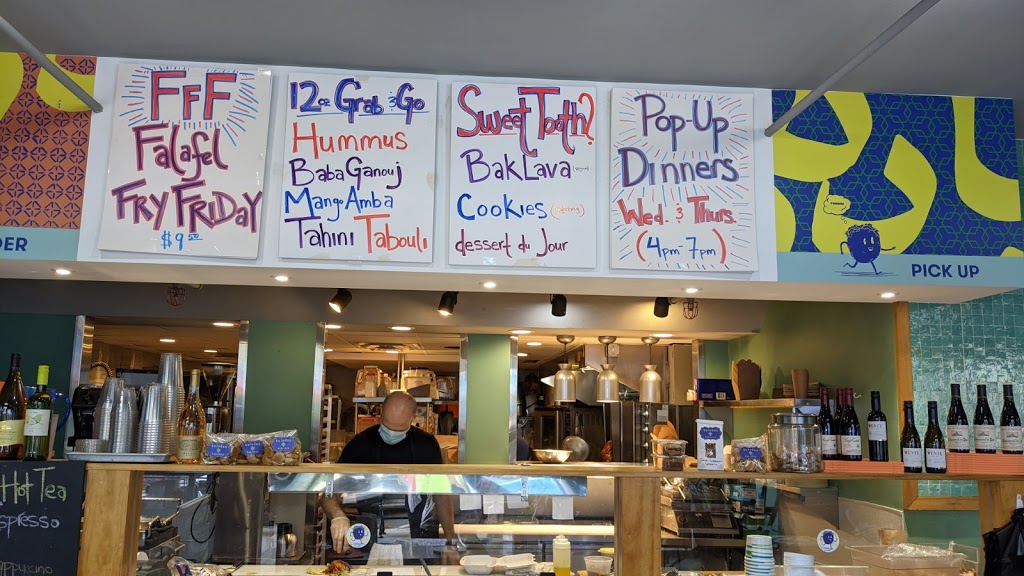 FFF
Falafel
FRY FRIDAY
$9.50
12oz Grab & Go
Hummus
Baba Ganouj
Mango Amba
Tahini Tabouli
Sweet Tooth?
BakLava
Cookies
dessert du Jour
Pop-Up
Dinners
Wed. & Thurs.
(4pm-7pm)
DER
PICK UP
Hot Tea
spresso